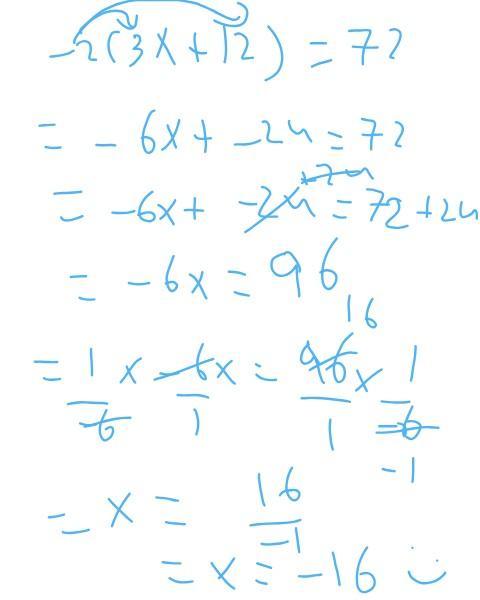 -2(3x+12) = 72
= - 6x+ -24 = 72
+24
= -6x+ -24 = 72+24
= -6x = 96
16
= 1/-6 x -6x/1 = 96/1 x 1/-6
-1
= x = 16/-1
= x = -16